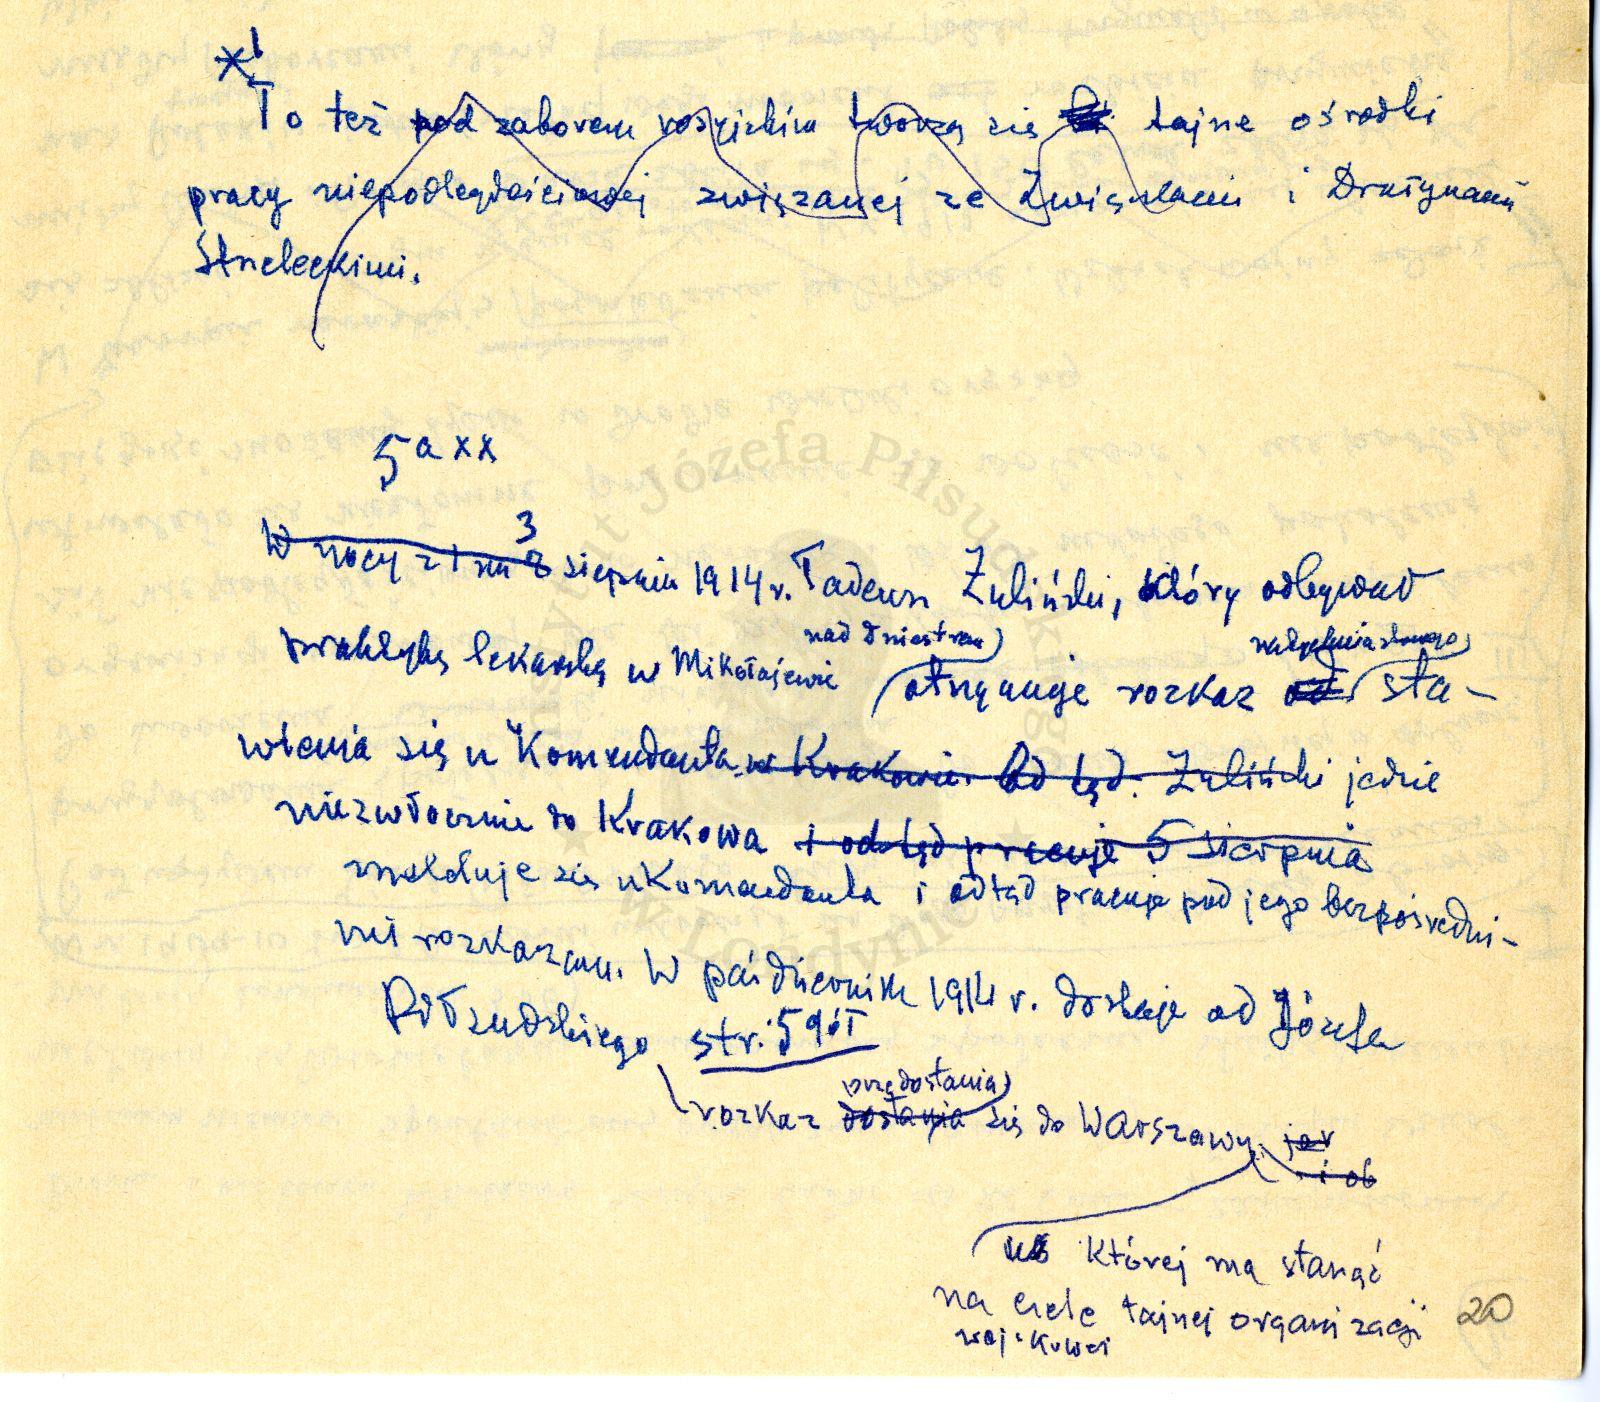 *1
To też pod zaborem rosyjskim tworzą się tajne ośrodki
pracy niepodległościowej związanej ze Związkami i Drużynami
Strzeleckimi.
5 a xx
W nocy z 1 na 2 3 sierpnia 1914 r. Tadeusz Żuliński, który odbywał
nad Dniestrem natychmiastowego
praktykę lekarską w Mikołajewie otrzymuje rozkaz od sta-
wienia się u Komendanta w Krakowie. Od tąd. Żuliński jedzie
niezwłocznie do Krakowa i odtąd pracuje 5 sierpnia
melduje się u Komendanta i odtąd pracuje pod jego bezpośredni-
mi rozkazami. W październiku 1914 r. dostaje od Józefa
Piłsudskiego str. 5 gór
przedostania
rozkaz dostania się do Warszawy,
i ob
której ma stanąć
na czele tajnej organizacji
wojskowej
20
Instytut Józefa Piłsudskiego
w Londynie